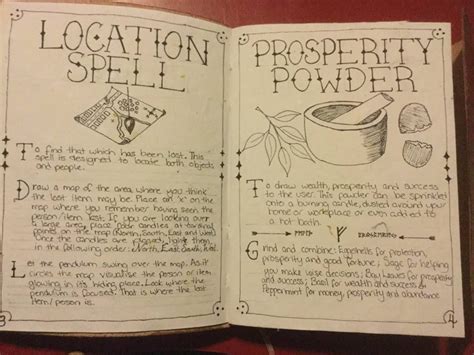 LOCATION
SPELL
To find that which has been lost. This
spell is designed to locate both objects
and people.
Draw a map of the area where you think
the lost item may be. Place an 'x' on the
map where you remember having seen the
person/item last. If you are looking over
a large area, place four candles at cardinal
points on the map (North, East, South and West)
Once the candles are placed, light them
in the following order: North, East, South, West.
Let the pendulum swing over the map. As it
circles the map visualise the person or item
glowing in its hiding place. Look where the
pendulum is focused. That is where the lost
item/person is.
3
PROSPERITY
POWDER
To draw wealth, prosperity and success
to the user. This powder can be sprinkled
onto a burning candle, dusted around your
home or workplace or even added to
a hot bath.
Grind and combine: Eggshells for protection,
prosperity and good fortune; Sage for helping
you make wise decisions; Bay Leaves for prosperity
and success; Basil for wealth and success &
Peppermint for money, prosperity and abundance
4